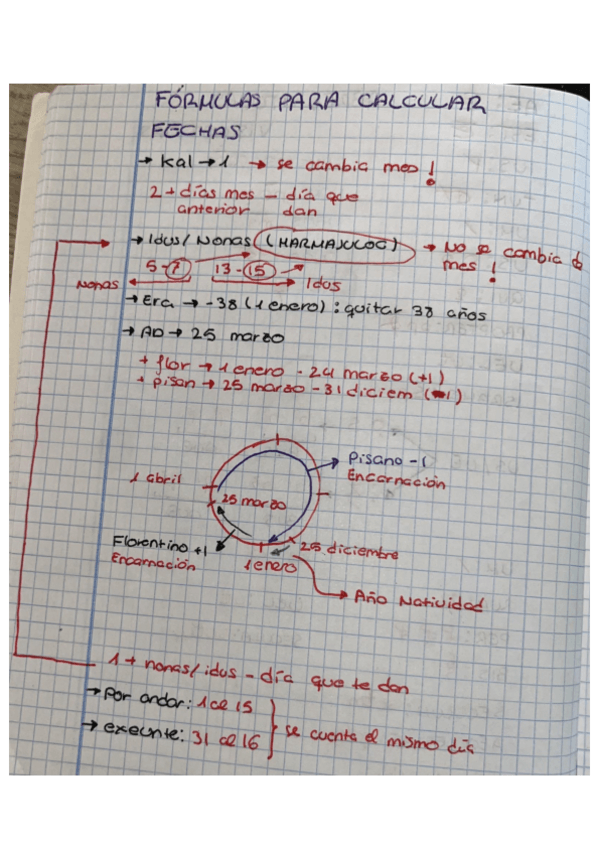 FÓRMULAS PARA CALCULAR
FECHAS
→ Kal → 1 → se cambia mes!
2 + días mes - día que
anterior dan
→ Idus/Nonas (MARMAJULOC) → No se cambia de
mes!
5-7 13-15
Nonas Idus
→ Era → -38 (1 enero) : quitar 38 años
→ AD → 25 marzo
+ flor → 1 enero - 24 marzo (+1)
+ pisan → 25 marzo - 31 diciem (-1)
Pisano -1
Encarnación
1 abril
25 marzo
Florentino +1
Encarnación
25 diciembre
1 enero
→ Año Natividad
1 + nonas/idus - día que te dan
→ Por andar: 1 al 15
→ exeunte: 31 al 16
se cuenta el mismo día